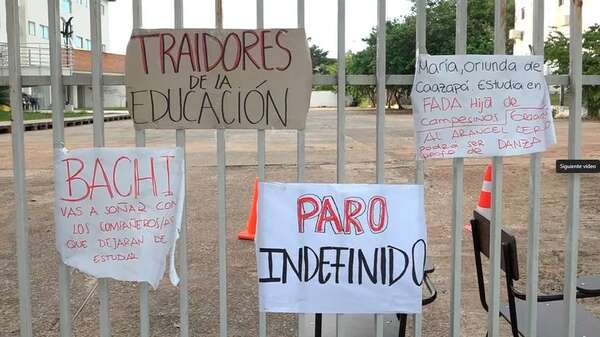 TRAIDORES
DE LA
EDUCACIÓN
María, oriunda de
Caazapá Estudia en
FADA Hija de
CAMPESINOS
AL ARANCEL CERO
podrá ser
DANZA
BACHI
VAS A SOÑAR CON
LOS COMPAÑEROS/AS
QUE DEJARAN DE
ESTUDIAR
PARO
INDEFINIDO
Siguiente video